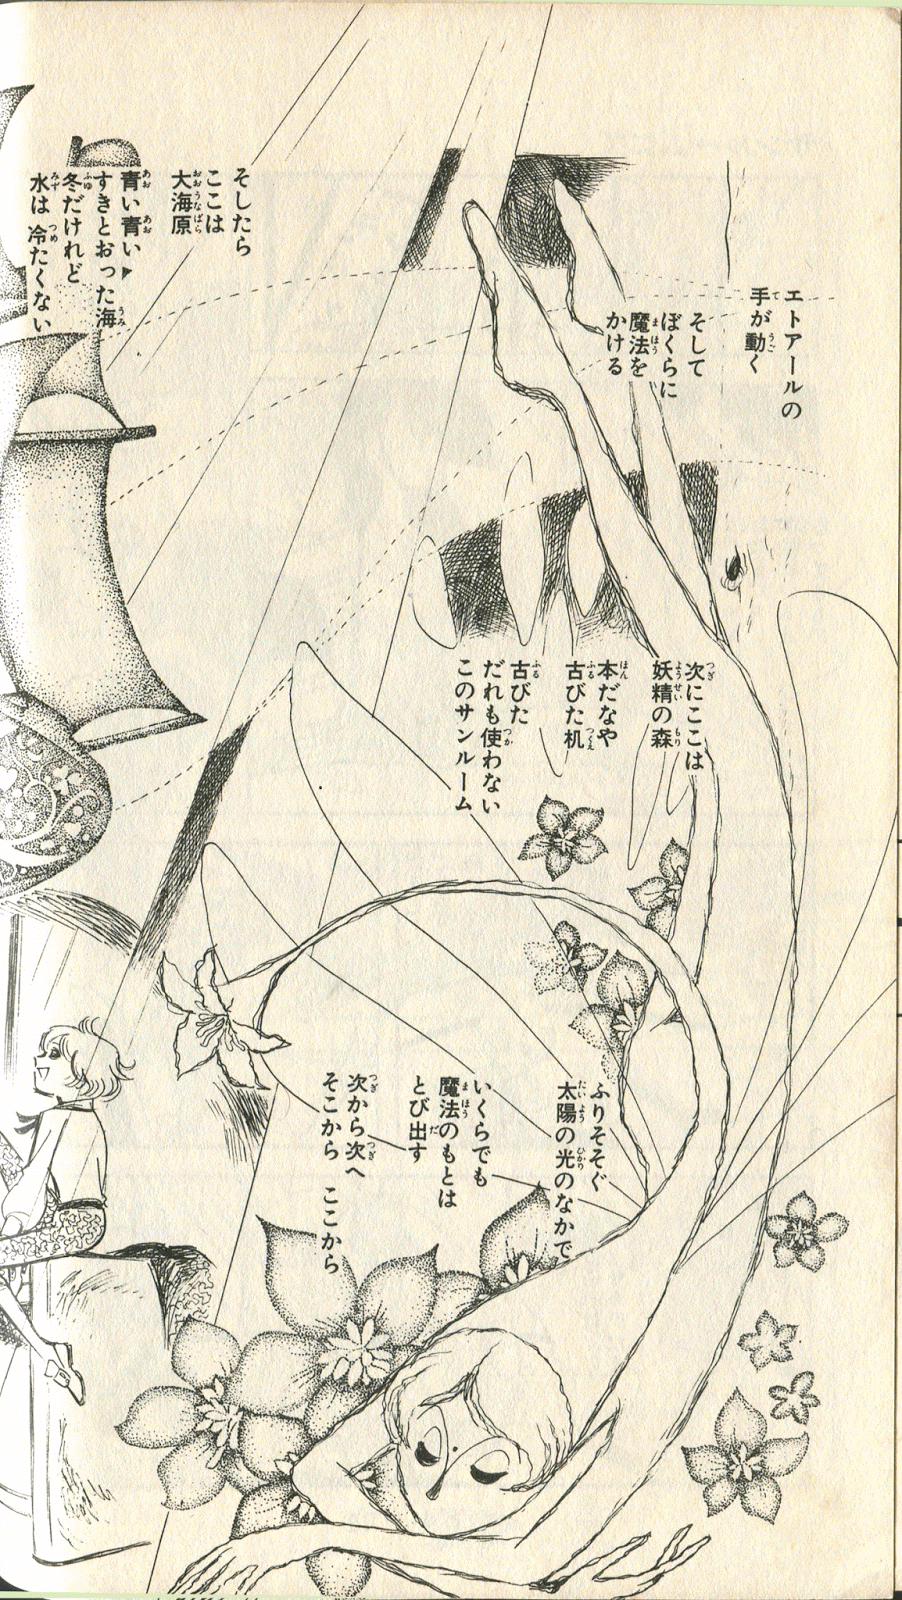 エトアールの
手が動く
そして
ぼくらに
魔法を
かける
次にここは
妖精の森
本だなや
古びた机
古びた
だれも使わない
このサンルーム
ふりそそぐ
太陽の光のなかで
いくらでも
魔法のもとは
とび出す
次から次へ
そこから ここから
そしたら
ここは
大海原
青い青い
すきとおった海
冬だけれど
水は 冷たくない